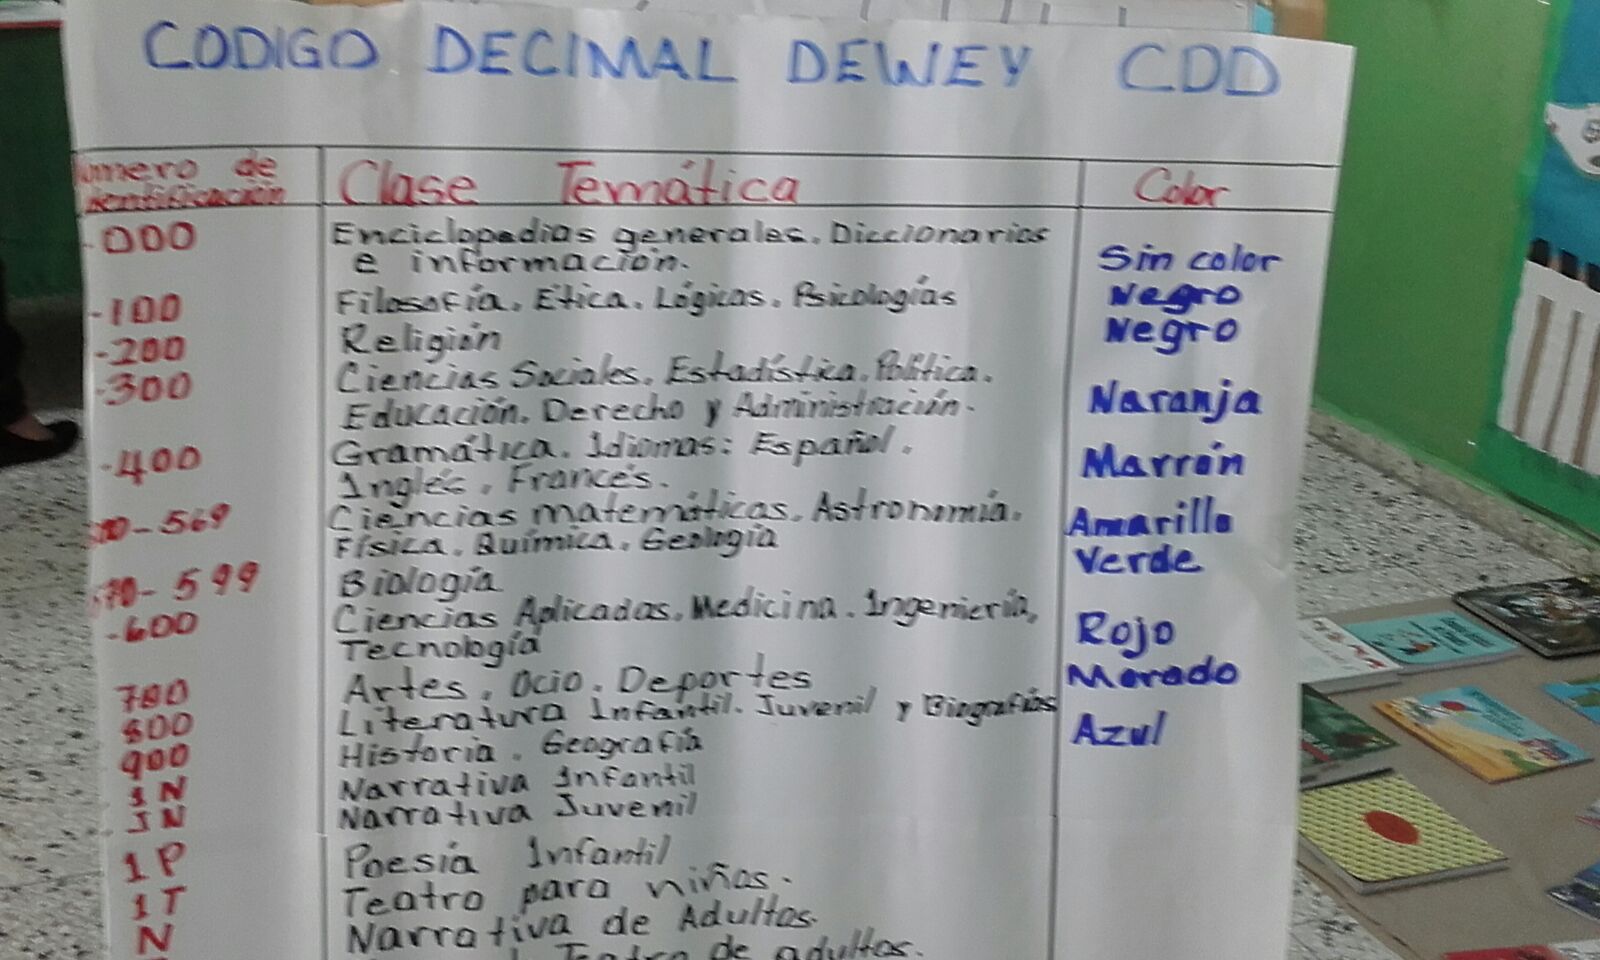 CODIGO DECIMAL DEWEY CDD
Número de identificación Clase Temática Color
-000 Enciclopedias generales. Diccionarios
e información. Sin color
-100 Filosofía. Etica. Lógicas. Psicologías Negro
-200 Religión Negro
-300 Ciencias Sociales. Estadística. Política.
Educación. Derecho y Administración. Naranja
-400 Gramática. Idiomas: Español.
Inglés. Francés. Marrón
-569 Ciencias matemáticas. Astronomía. Amarillo
Física. Química. Geología
70-599 Biología Verde
-600 Ciencias Aplicadas. Medicina. Ingeniería,
Tecnología Rojo
700 Artes. Ocio. Deportes Morado
800 Literatura Infantil. Juvenil y Biografías
900 Historia. Geografía Azul
IN Narrativa Infantil
JN Narrativa Juvenil
IP Poesía Infantil
IT Teatro para niños.
N Narrativa de Adultos.
Teatro de adultos.